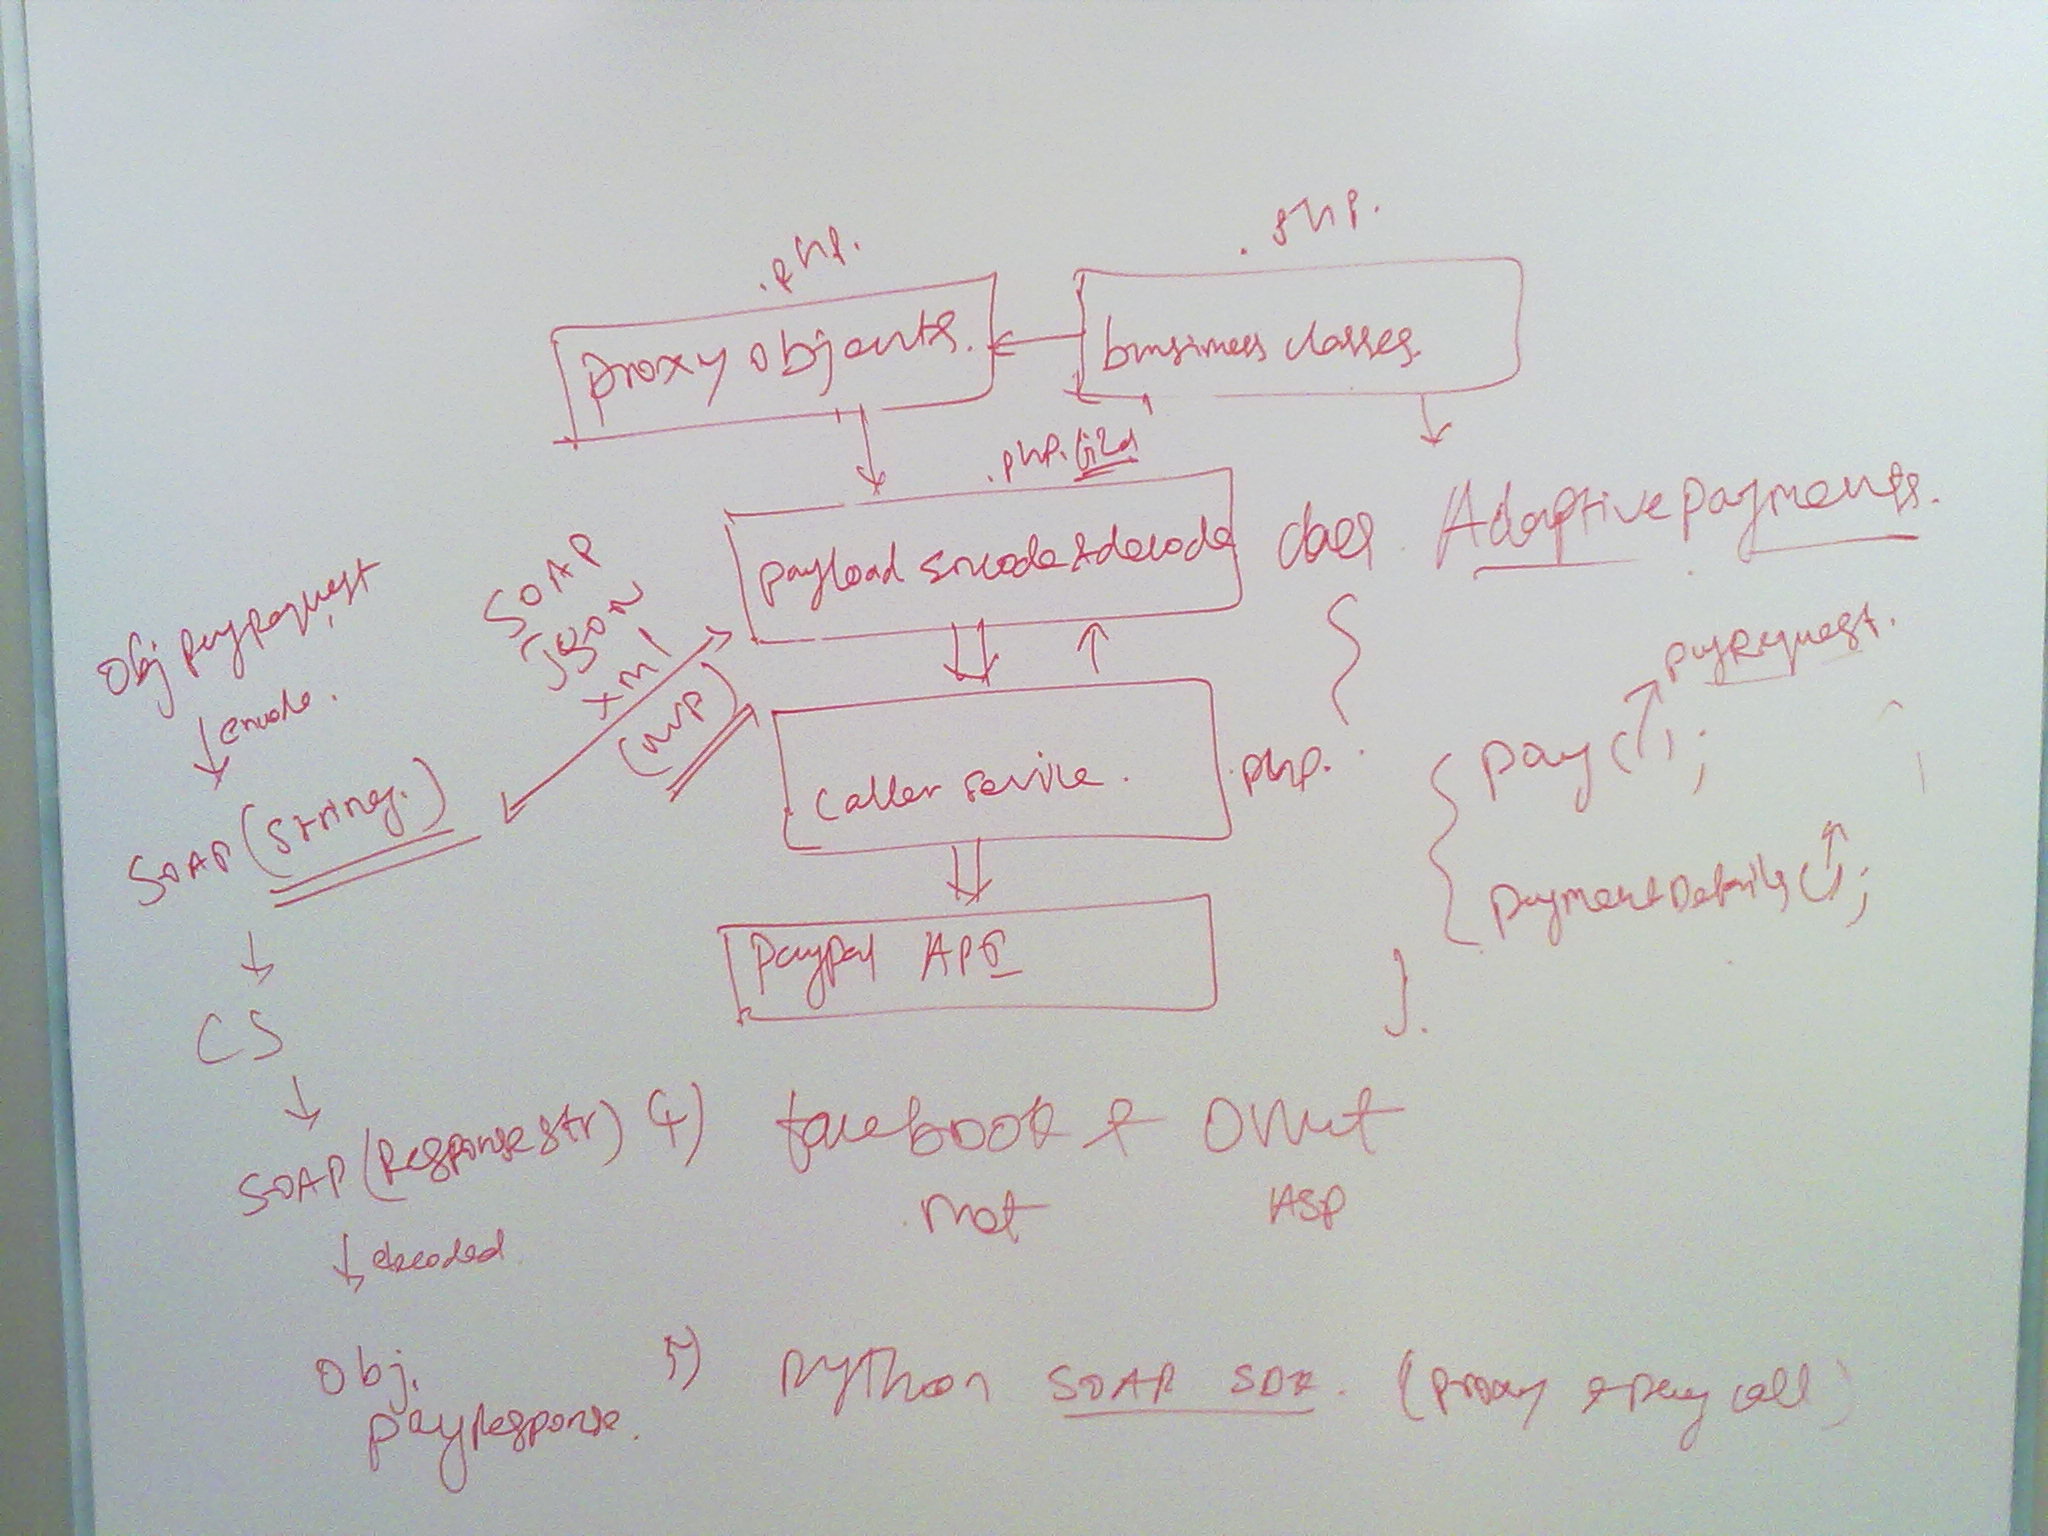 .php.
.php.
proxy objects.
business classes.
.php.
payload encode & decode
class Adaptive payments.
{
payRequest.
pay( );
paymentDetails( );
}.
caller service.
.php.
Paypal API
SOAP
JSON
xml
(NVP)
Obj payrequest
encode.
SOAP (string.)
CS
SOAP (Response str)
decoded
Obj.
payResponse.
4) facebook &
not
ASP
5) python SOAP SDK. (proxy & pay call)